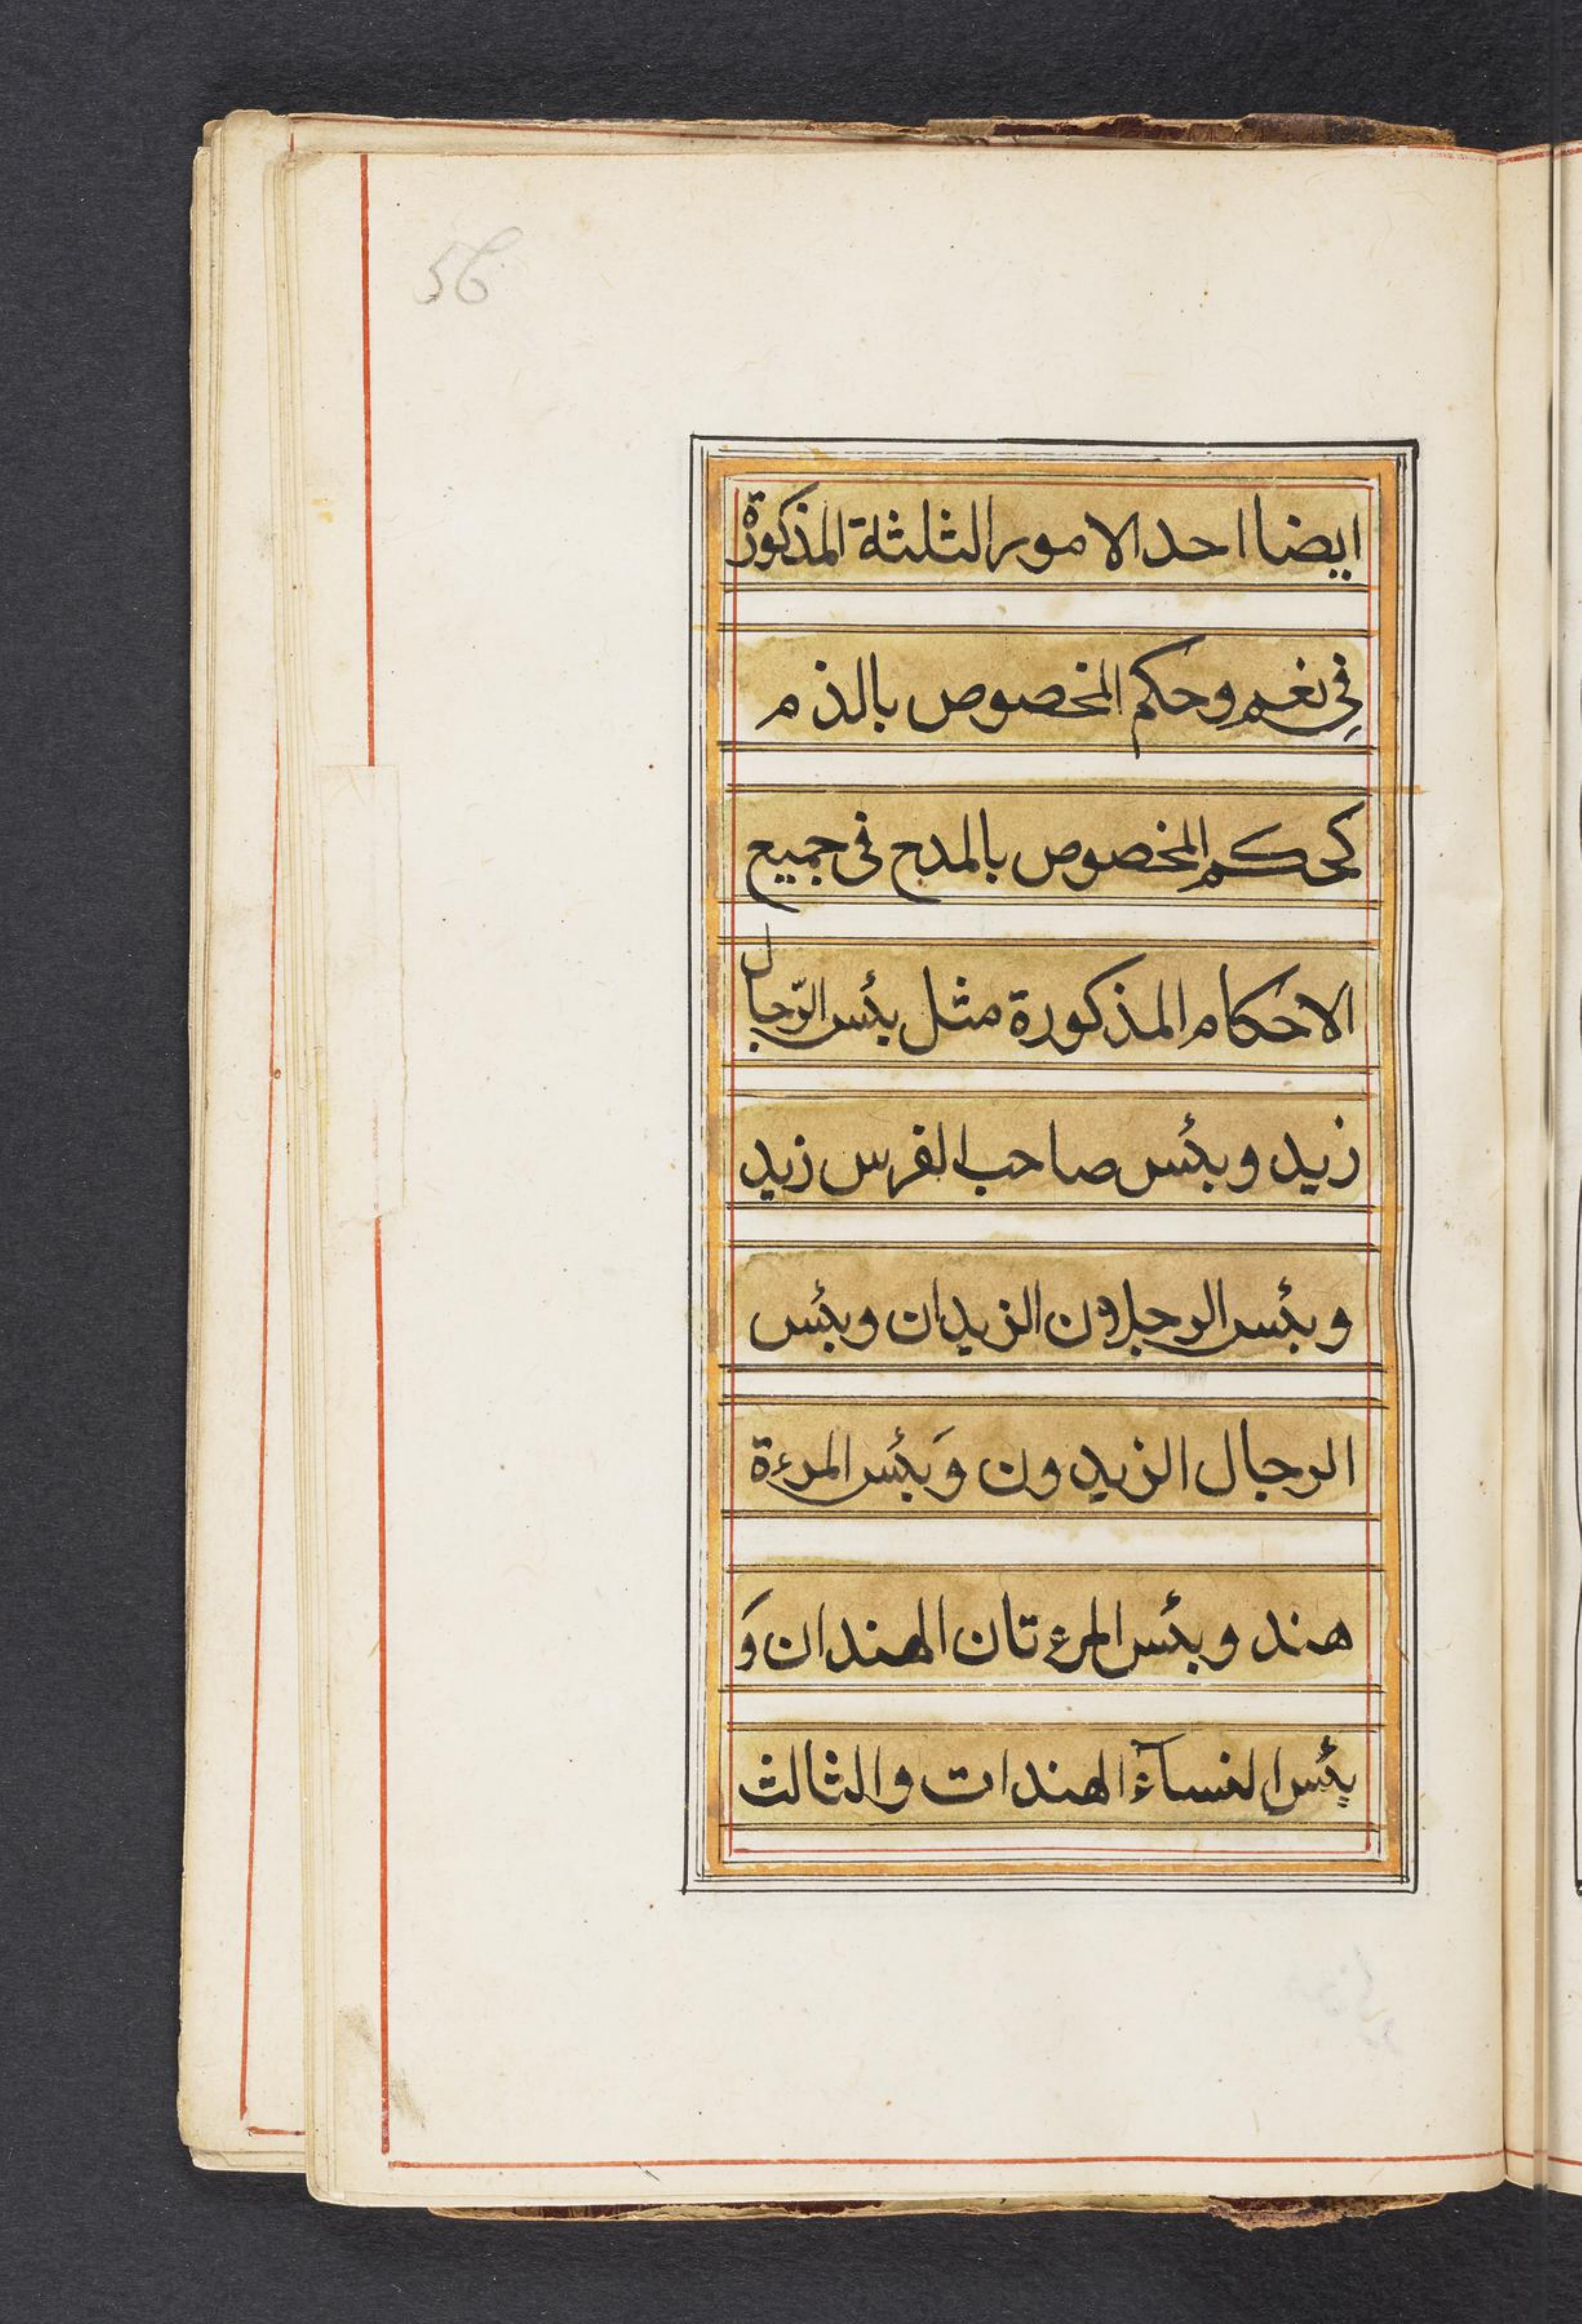 56
ايضا احد الامور الثلثة المذكورة
فى نعم وحكم المخصوص بالذم
كحكم المخصوص بالمدح فى جميع
الاحكام المذكورة مثل بئس الرّجال
زيد وبئس صاحب الفرس زيد
وبئس الرجلان الزيدان وبئس
الرجال الزيدون وَبئس المرءة
هند وبئس المرءتان الهندان وَ
بئس النسآء الهندات والثالث